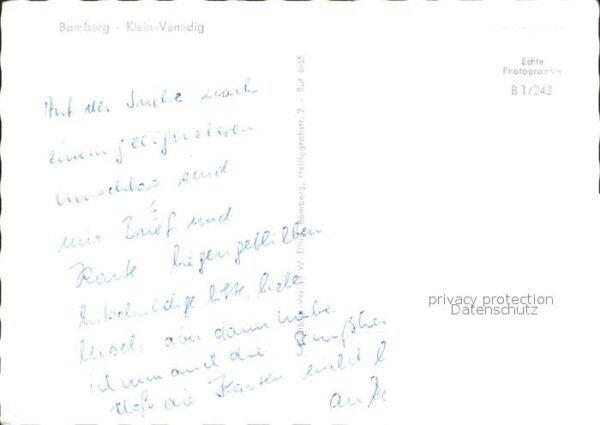 Bamberg - Klein-Venedig
Echte
Photographie
B 1/243
Auf der Suche nach
einem geeigneteren
Umschlag sind
mir Brief und
Karte liegengeblieben.
Entschuldige bitte, liebe
aber dann habe
ich nun auch die
daß die Karten nicht
W. Tillig, Bamberg, Hellfeldstr. 2 - Ruf 4655
privacy protection
Datenschutz